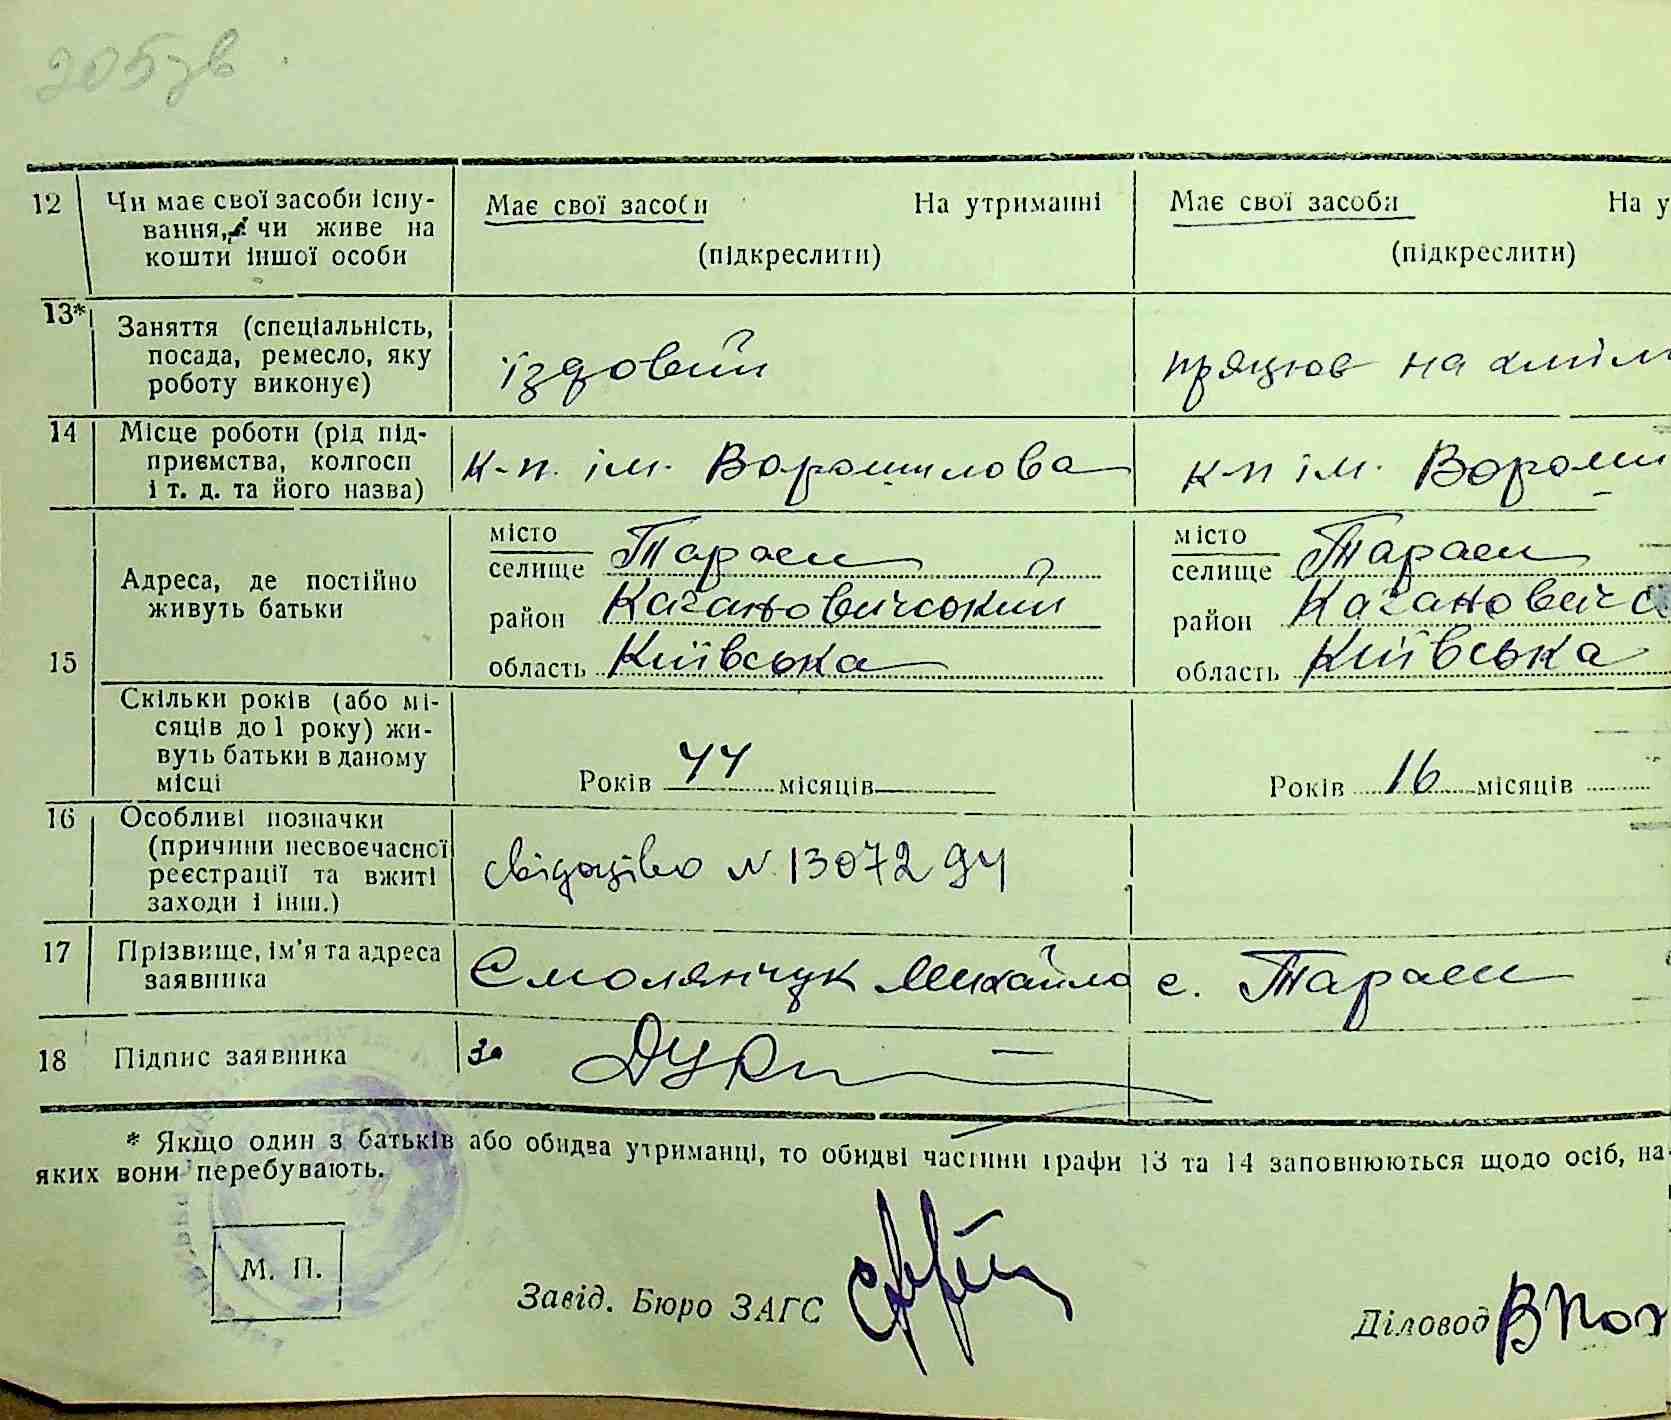 205зв
12 Чи має свої засоби існу-
вання, чи живе на
кошти іншої особи
Має свої засоби На утриманні
(підкреслити)
Має свої засоби На у
(підкреслити)
13* Заняття (спеціальність,
посада, ремесло, яку
роботу виконує)
їздовий
працює на
14 Місце роботи (рід під-
приємства, колгосп
і т. д. та його назва)
к-п. ім. Ворошилова
к-п ім. Вороши
15 Адреса, де постійно
живуть батьки
місто
селище Тараси
район Кагановичський
область Київська
місто
селище Тараси
район Кагановичс
область Київська
Скільки років (або мі-
сяців до 1 року) жи-
вуть батьки в даному
місці
Років 44 місяців
Років 16 місяців
16 Особливі позначки
(причини несвоєчасної
реєстрації та вжиті
заходи і інш.)
свідоцтво N 1307294
17 Прізвище, ім'я та адреса
заявника
Смолянчук Михайло с. Тараси
18 Підпис заявника
за
* Якщо один з батьків або обидва утриманці, то обидві частини графи 13 та 14 заповнюються щодо осіб, на
яких вони перебувають.
М. П.
Завід. Бюро ЗАГС
Діловод